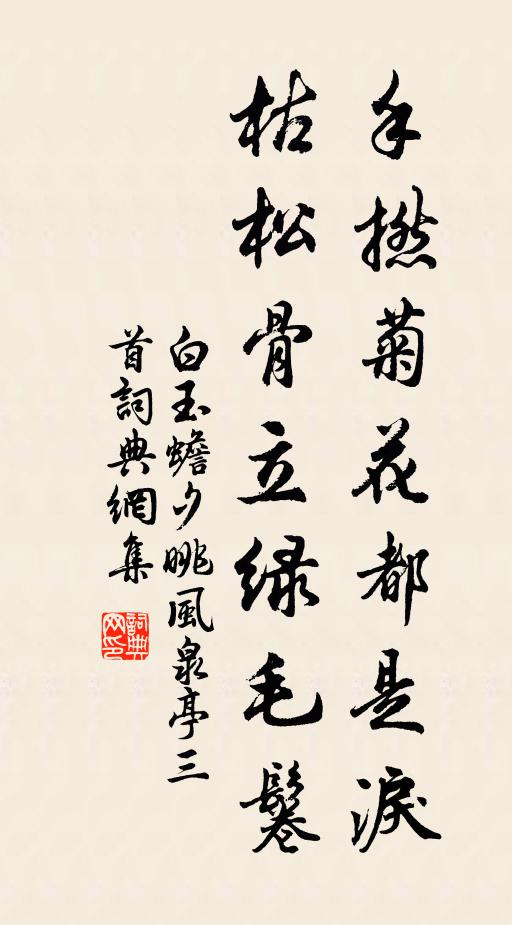 手撚菊花都是淚
枯松骨立緑毛鬈
白玉蟾夕眺風泉亭三
首詞典網集
詞典
网印